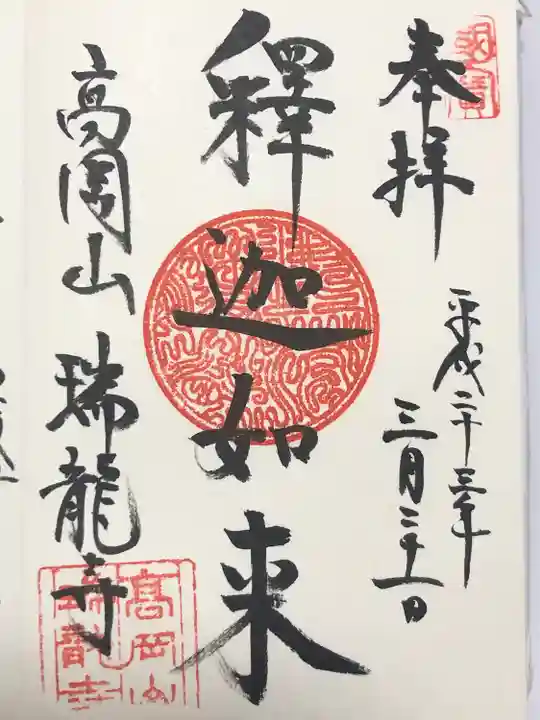 奉拝
平成二十三年
三月二十一日
釋迦如来
高岡山 瑞龍寺
高岡山
瑞龍寺